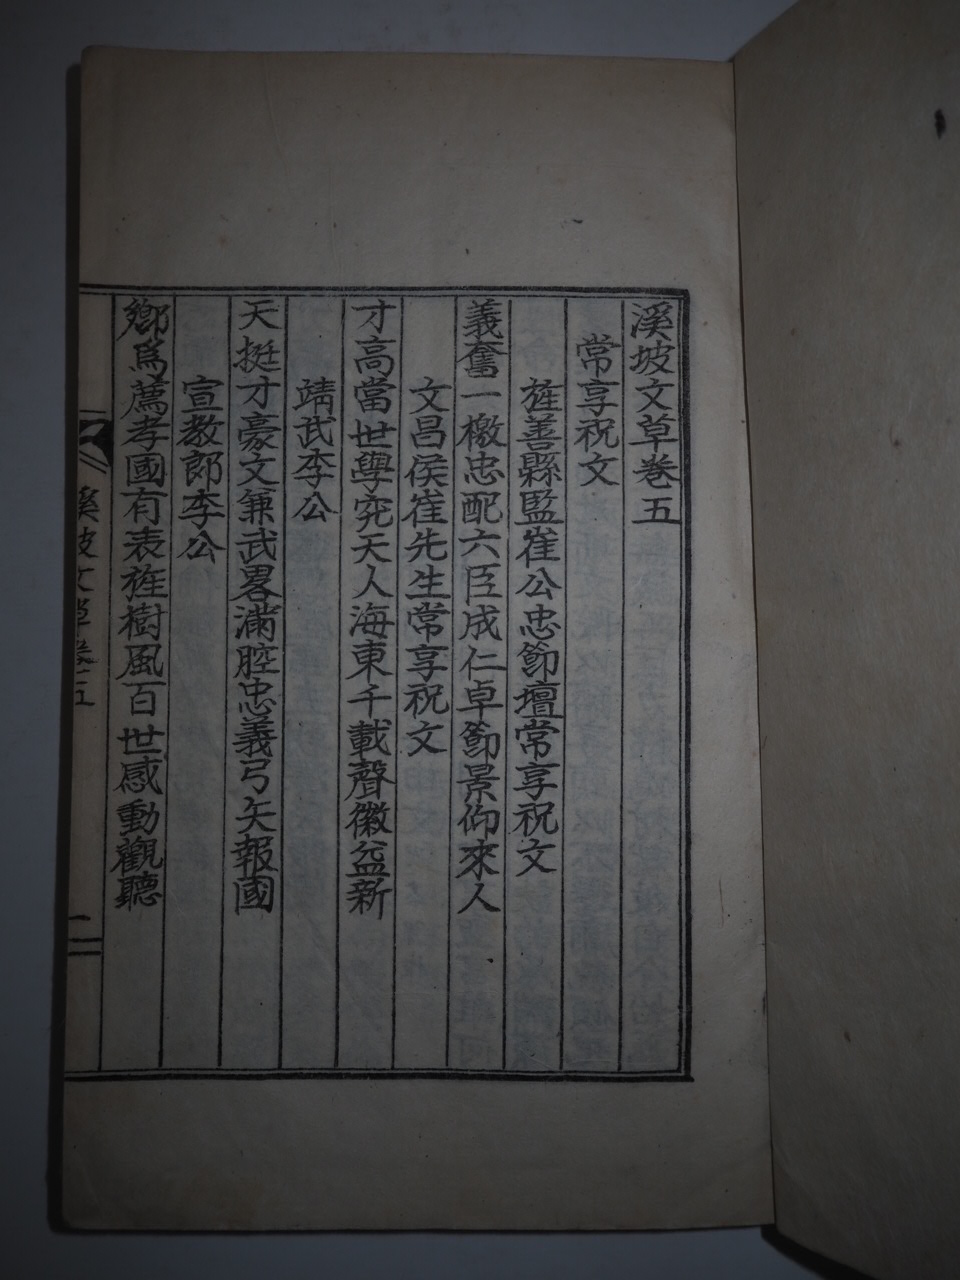 溪坡文草卷五
常享祝文
旌善縣監崔公忠節壇常享祝文
義奮一檄忠配六臣成仁卓節景仰來人
文昌侯崔先生常享祝文
才高當世學究天人海東千載聲徽益新
靖武李公
天挺才豪文兼武畧滿腔忠義弓矢報國
宣教郎李公
鄕爲薦孝國有表旌樹風百世感動觀聽
溪坡文草卷五